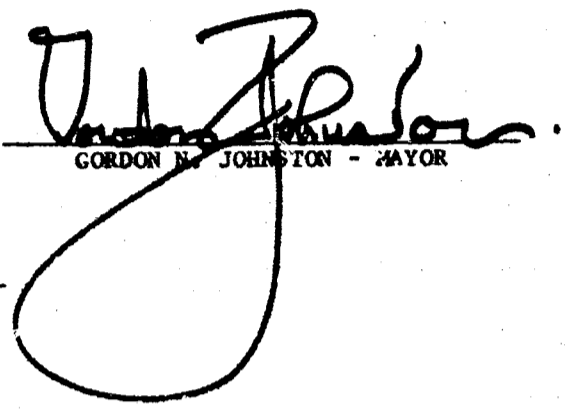 Gordon Johnston
GORDON N. JOHNSTON - MAYOR